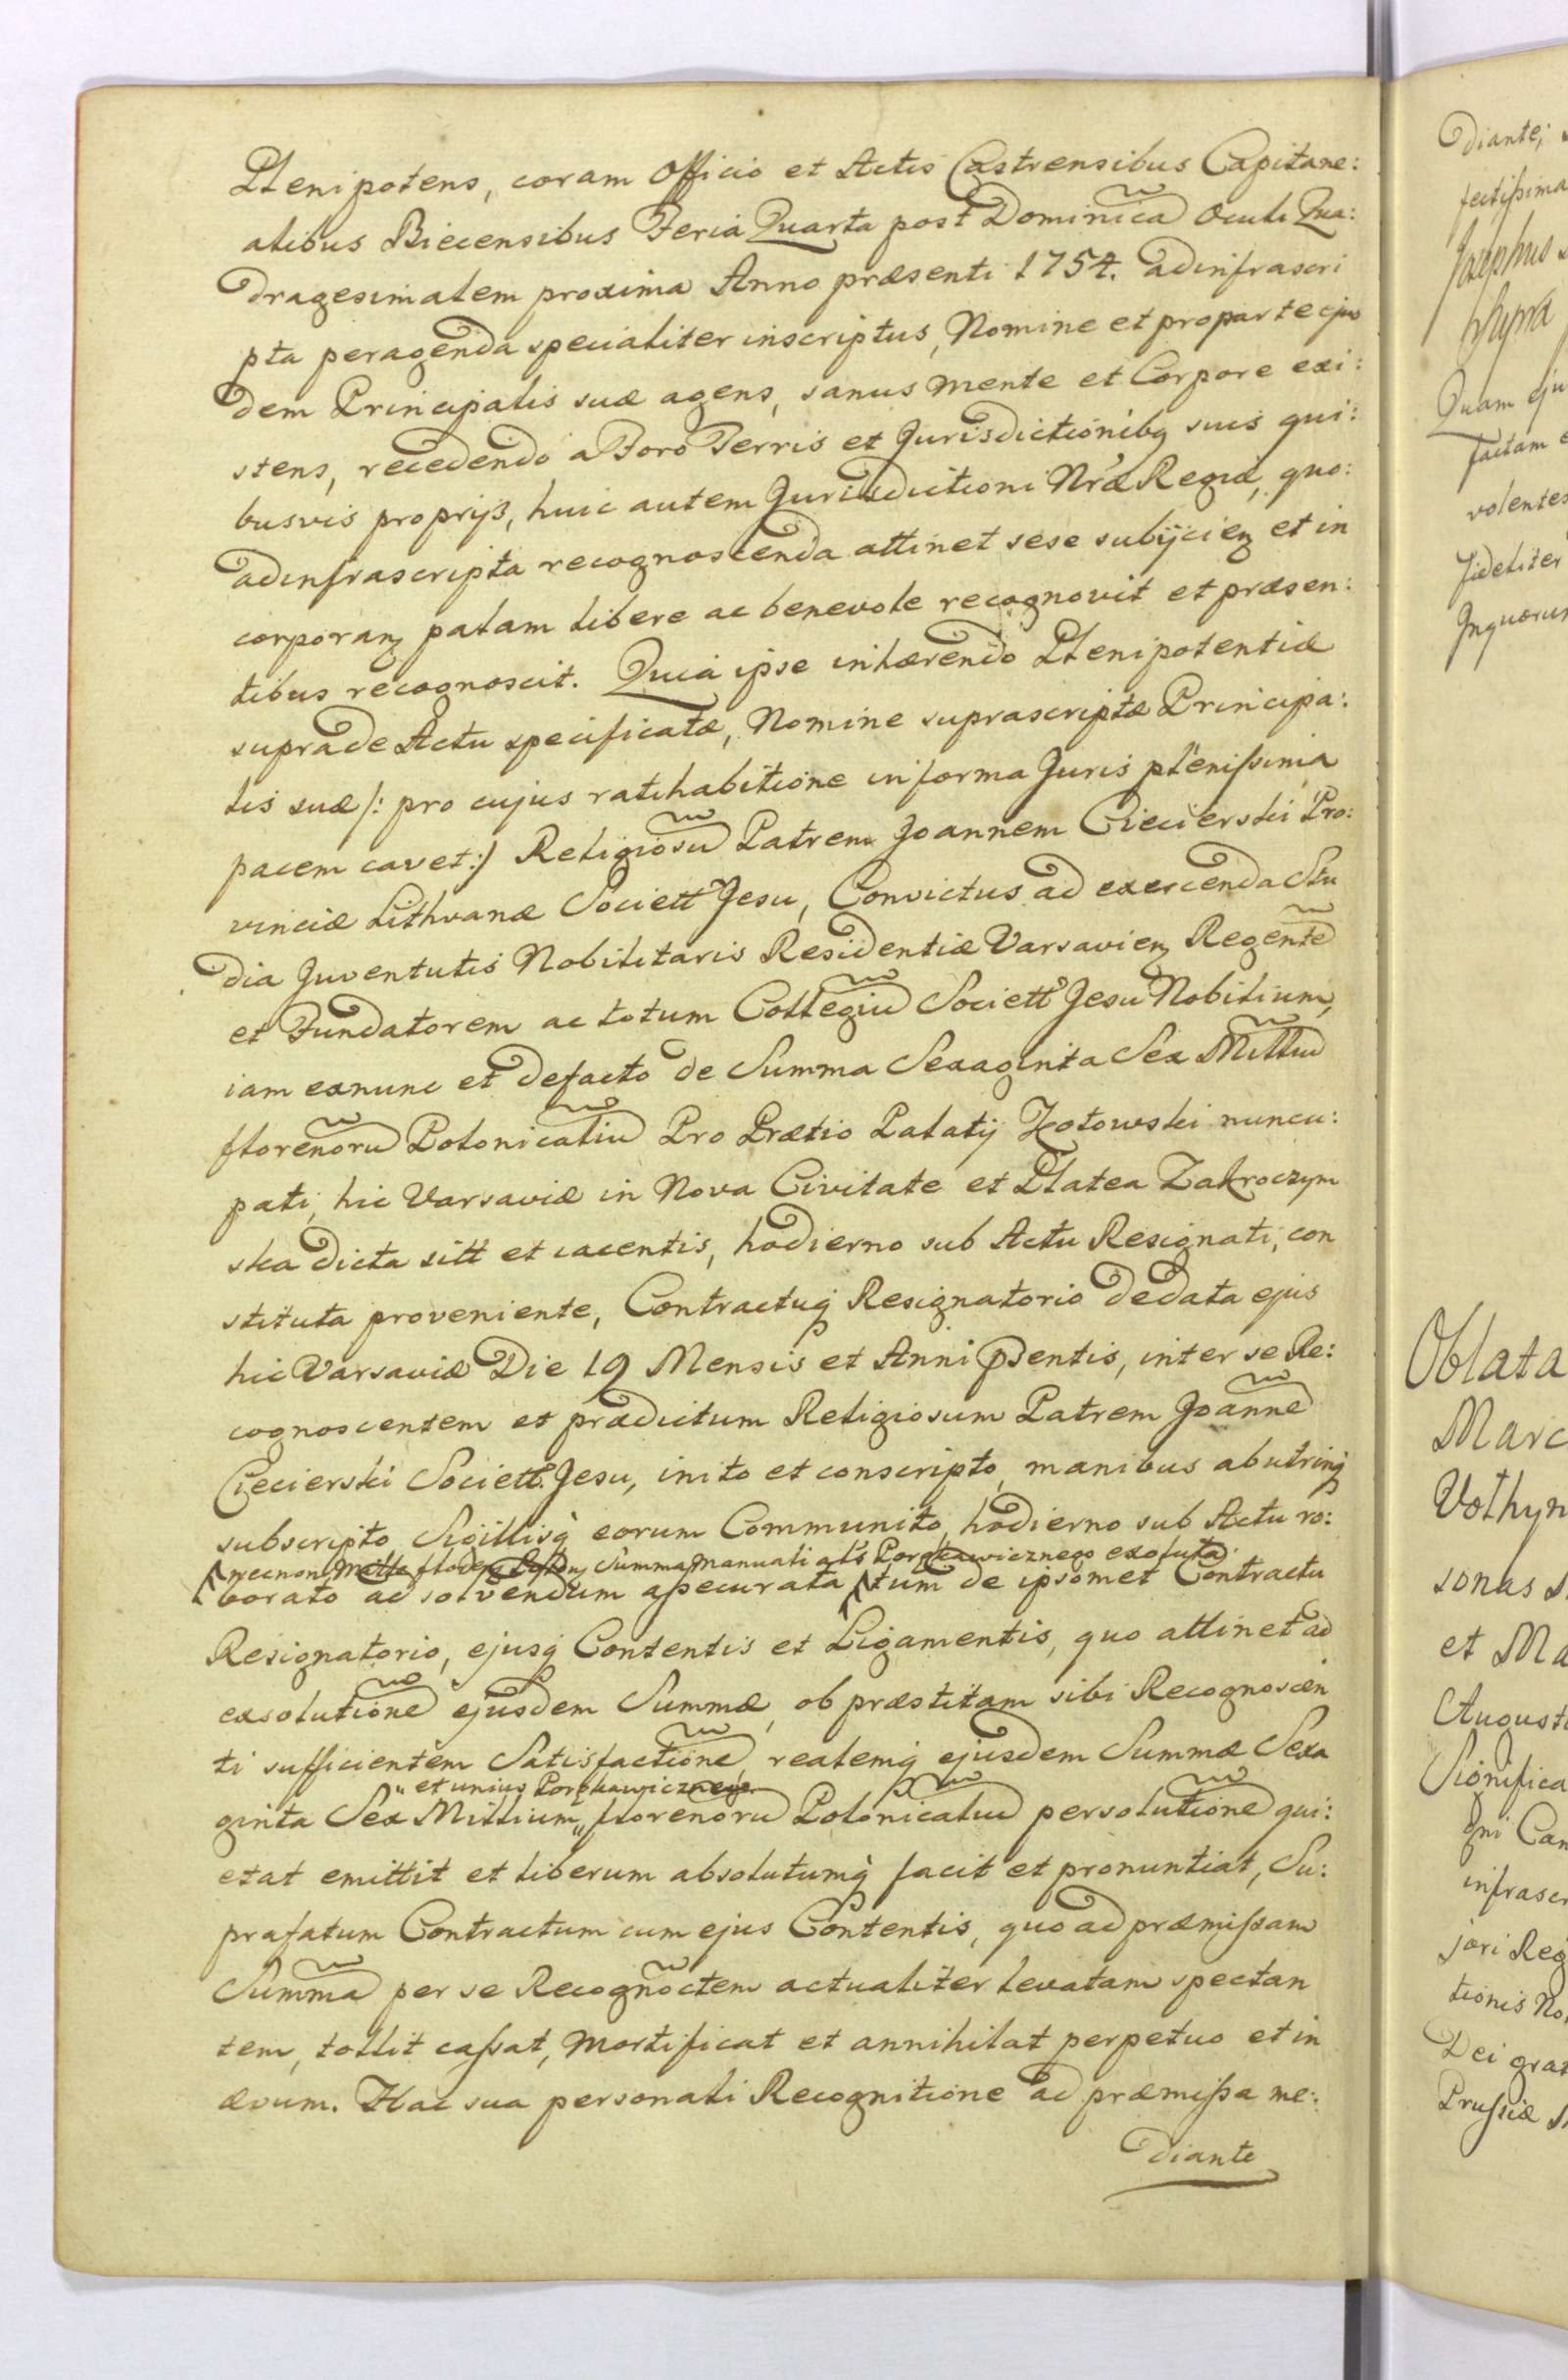 Plenipotens, coram Officio et Actis Castrensibus Capitane:
alibus Biecensibus Feria Quarta post Dominica Oculi Qua:
dragesimalem proxima Anno præsenti 1754. ad infrascri
pta peragenda specialiter inscriptus, Nomine et pro parte ejus
dem Principalis suæ agens, sanus mente et Corpore exi:
stens, recedendo a Foro Terris et Jurisdictionibq suis qui:
busvis proprijs, huic autem Jurisdictioni Nræ Regiæ, quo:
ad infrascripta recognoscenda attinet sese subijcien et in
corporan palam libere ac benevole recognovit et præsen:
tibus recognoscit. Quia ipse inhærendo Plenipotentiæ
supra de Actu specificatæ, Nomine suprascriptæ Principa:
lis suæ /: pro cujus ratihabitione in forma Juris plenissima
pacem cavet :/ Religiosu Patrem Joannem Ciecierski Pro:
vinciæ Lithvanæ Societt Jesu, Convictus ad exercenda Stu
dia Juventutis Nobilitaris Residentiæ Varsavien Regente
et Fundatorem ac totum Collegiu Societt Jesu Nobilium,
iam exnunc et defacto de Summa Sexaginta Sex Milliu
florenoru Polonicaliu Pro Prætio Palatij Kotowski nuncu:
pati, hic Varsaviæ in Nova Civitate et Platea Zakroczym
ska dicta sitt et iacentis, hodierno sub Actu Resignati, con
stituta proveniente, Contractuq Resignatorio de data ejus
hic Varsaviæ Die 19 Mensis et Anni pdentis, inter se Re:
cognoscentem et prædictum Religiosum Patrem Joanne
Ciecierski Societt. Jesu, inito et conscripto, manibus ab utrinq
subscripto Sigillisq eorum Communito, hodierno sub Actu ro:
necnon Summa Manuali als Porękawicznego exoluta
borato ad solvendum assecurata tum de ipsomet Contractu
Resignatorio, ejusq Contentis et Ligamentis, quo attinet ad
exsolutione ejusdem Summæ, ob præstitam sibi Recognoscen
ti sufficientem Satisfactione, realemq ejusdem Summæ Sexa
" et unius Porękawicznego
ginta Sex Millium " florenoru Polonicaliu persolutione qui:
etat emittit et liberum absolutumq facit et pronuntiat, Su:
prafatum Contractum cum ejus Contentis, quo ad præmissam
Summa per se Recognoctem actualiter levatam spectan
tem, tollit cassat, mortificat et annihilat perpetuo et in
ævum. Hac sua personali Recognitione ad præmissa me:
diante
diante;
fectissima
Josephus
Quam eju
factam
volentes
fideliter
Inquorum
Oblata
Marc
Volhyn
sonas
et Ma
August
Significa
Qni Can
infrascr
jori Reg
tionis No
Dei grat
Prussiæ